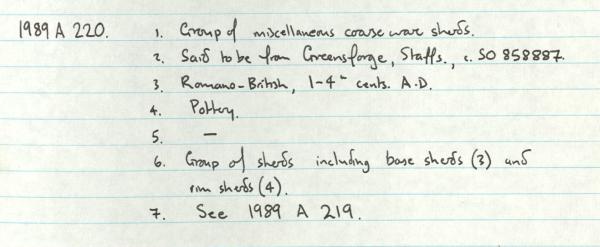 1989 A 220. 1. Group of miscellaneous coarse ware sherds.
2. Said to be from Greensforge, Staffs., c. SO 858887.
3. Romano-British, 1-4th cents. A.D.
4. Pottery.
5. —
6. Group of sherds including base sherds (3) and
rim sherds (4).
7. See 1989 A 219.